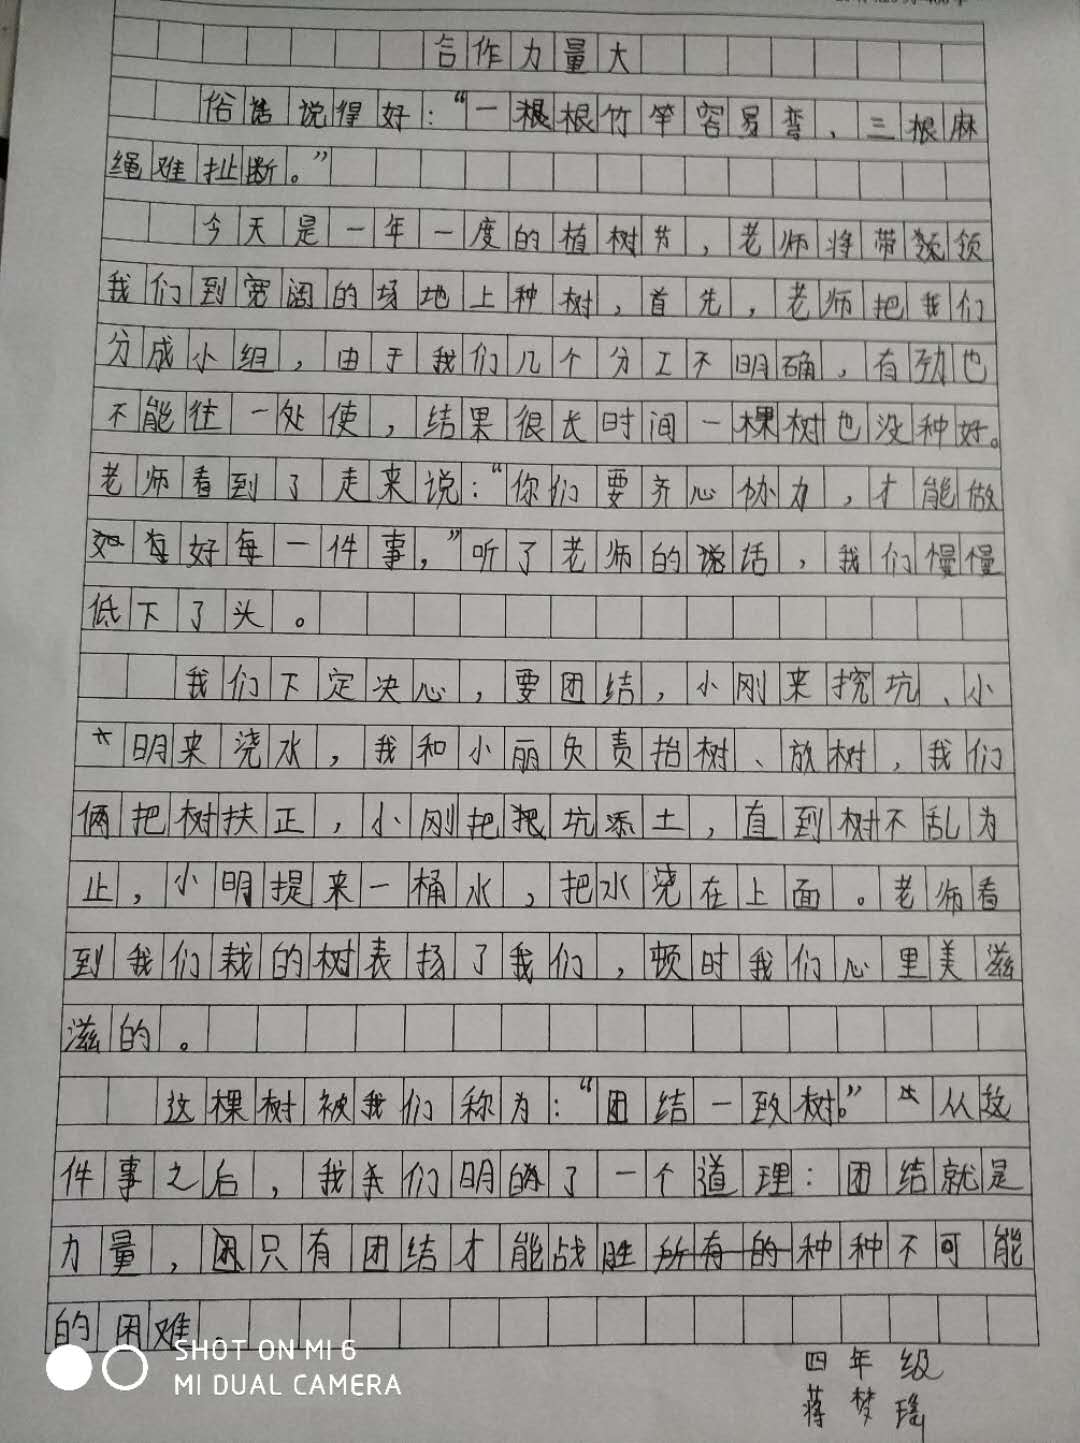 合作力量大
俗话说得好：“一根根竹竿容易弯，三根麻
绳难扯断。”
今天是一年一度的植树节，老师将带领
我们到宽阔的场地上种树，首先，老师把我们
分成小组，由于我们几个分工不明确，有劲也
不能往一处使，结果很长时间一棵树也没种好。
老师看到了走来说：“你们要齐心协力，才能做
好每一件事，”听了老师的话，我们慢慢
低下了头。
我们下定决心，要团结，小刚来挖坑、小
明来浇水，我和小丽负责抬树、放树，我们
俩把树扶正，小刚把坑添土，直到树不乱为
止，小明提来一桶水，把水浇在上面。老师看
到我们栽的树表扬了我们，顿时我们心里美滋
滋的。
这棵树被我们称为：“团结一致树。”从这
件事之后，我们明的了一个道理：团结就是
力量，只有团结才能战胜种种不可能
的困难.
四年级
蒋梦瑶
SHOT ON MI 6
MI DUAL CAMERA